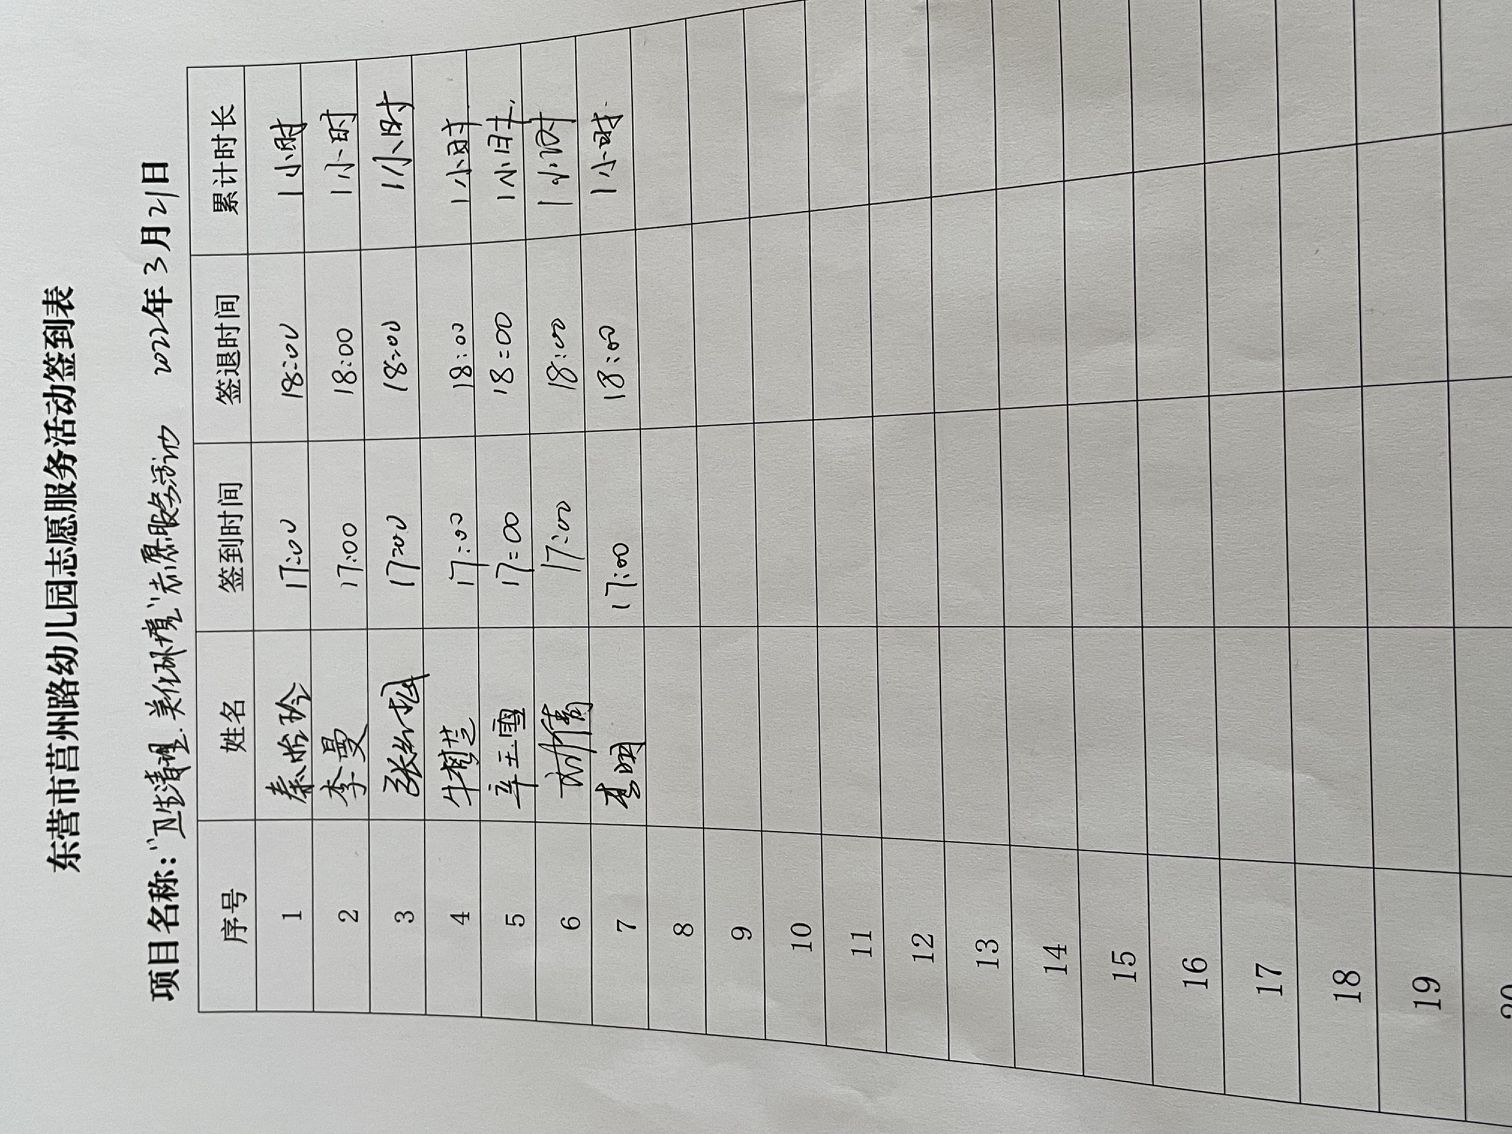 东营市莒州路幼儿园志愿服务活动签到表
项目名称：“卫生清理.美化环境”志愿服务活动 2022年3月21日
序号 姓名 签到时间 签退时间 累计时长
1 秦晓玲 17:00 18:00 1小时
2 李曼 17:00 18:00 1小时
3 17:00 18:00 1小时
4 牛梦兰 17:00 18:00 1小时
5 辛玉雪 17:00 18:00 1小时
6 刘倩 17:00 18:00 1小时
7 李明 17:00 18:00 1小时
8
9
10
11
12
13
14
15
16
17
18
19
20